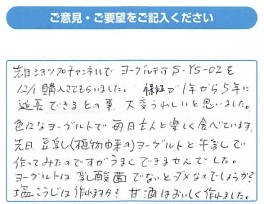 ご意見・ご要望をご記入ください
先日ショップチャンネルで ヨーグルティアS・YS-02を
12/1 購入させてもらいました。 保証が1年から5年に
延長できるとの事、大変うれしいと思いました。
色々なヨーグルトで毎日主人と楽しく食べています。
先日 豆乳(植物由来の)ヨーグルトと牛乳で
作ってみたのですがうまくできませんでした。
ヨーグルトは 乳酸菌でないとダメなのでしょうか?
塩こうじは作れますか? 甘酒はおいしく作れました。